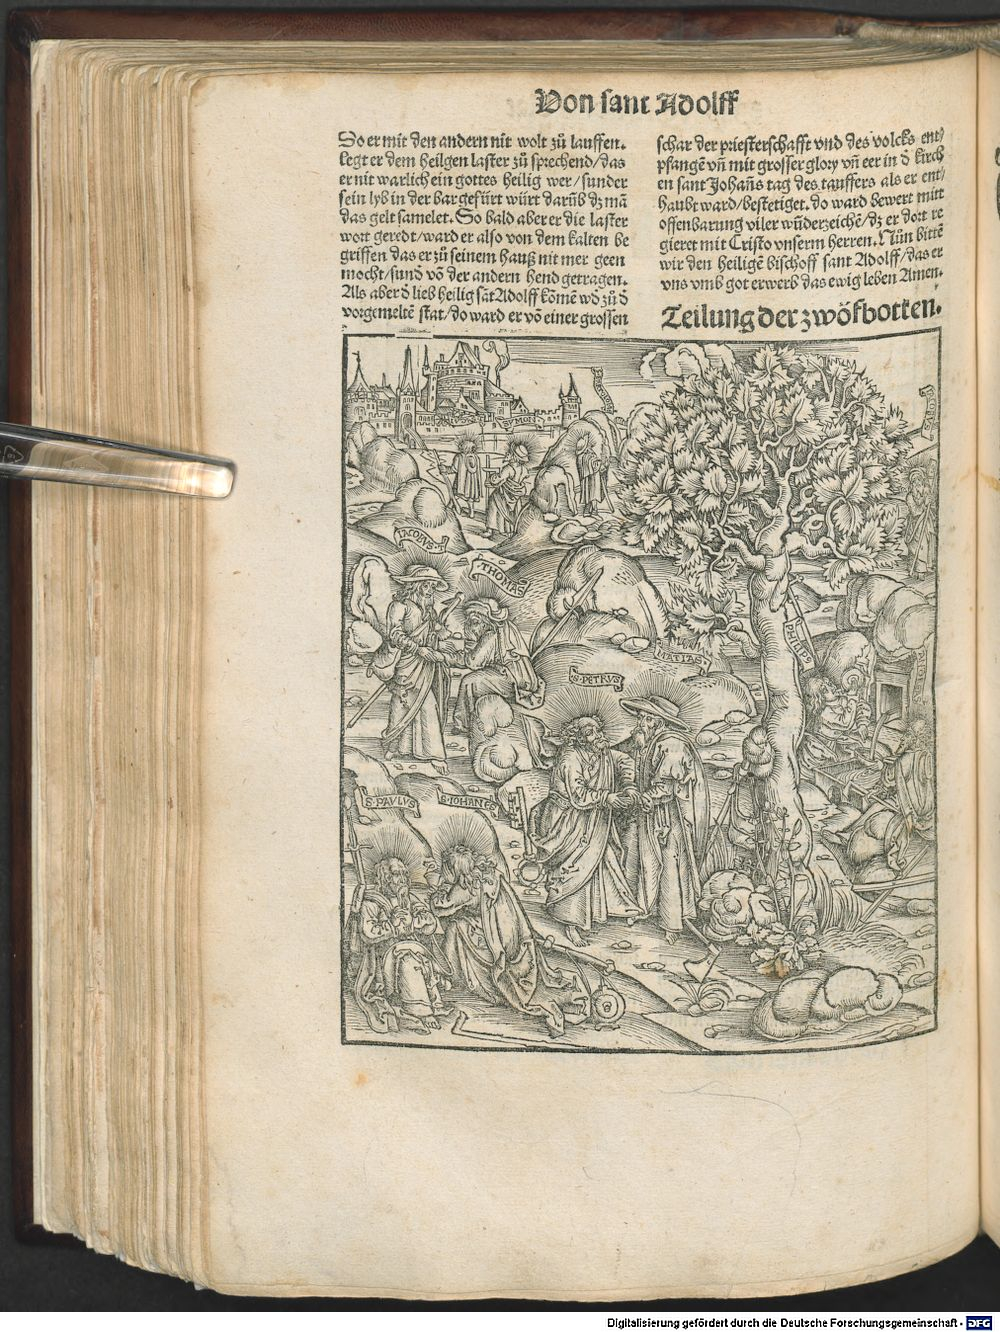 Von sant Adolff
So er mit den andern nit wolt zů lauffen.
legt er dem heilgen laster zů sprechend/das
er nit warlich ein gottes heilig wer/sunder
sein lyb in der bar gefürt würt darüb dz mā
das gelt samelet. So bald aber er die laster
wort geredt/ward er also von dem kalten be
griffen das er zů seinem hauß nit mer geen
mocht/sund vō der andern hend getragen.
Als aber d̄ lieb heilig sāt Adolff kōmē wz zů d̄
vorgemeltē stat/do ward er vō einer grossen
schar der priesterschafft vnd des volcks ent/
pfangē vn̄ mit grosser glory vn̄ eer in d̄ kirch
en sant Johan̄s tag des tauffers als er ent/
haubt ward/bestetiget. do ward bewert mitt
offenbarung viler wūderzeichē/dz er dort re
gieret mit Cristo vnserm herren. Nůn bittē
wir den heiligē bischoff sant Adolff/das er
vns vmb got erwerb das ewig leben Amen.
Teilung der zwöfbotten.
SYMON
IACOBVS
THOMAS
MATIAS
S·PETRVS
PHILIPS
S·PAVLVS
S·IOHANES
Digitalisierung gefördert durch die Deutsche Forschungsgemeinschaft - DFG